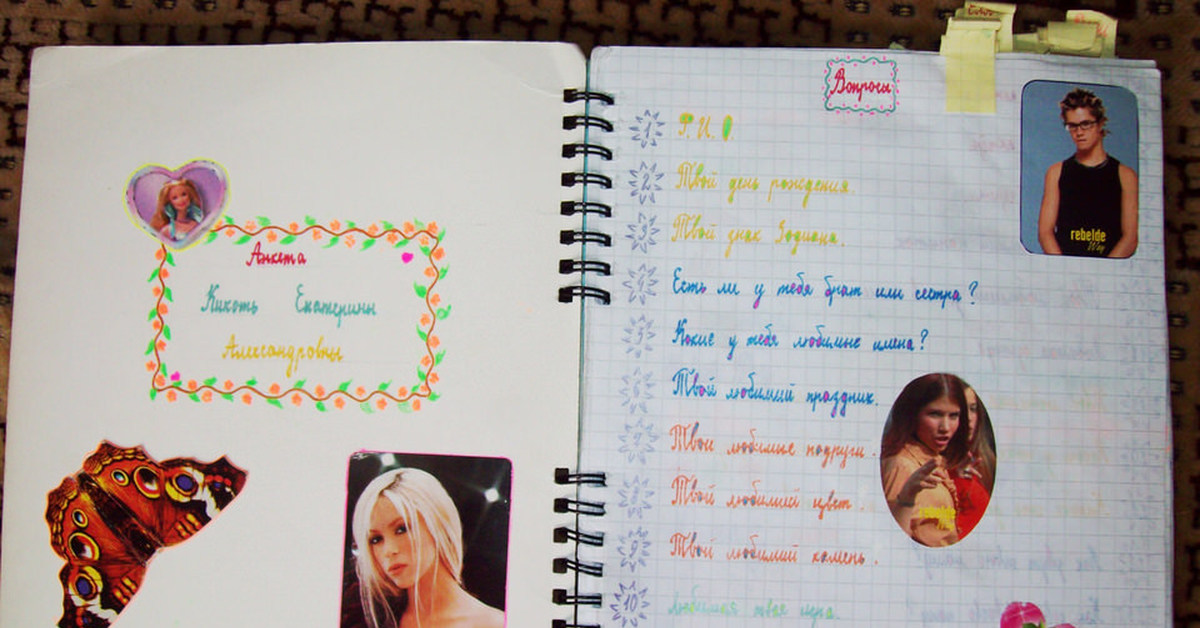 Анкета
Кикоть Екатерины
Александровны
Вопросы
1 Ф. И. О.
2 Твой день рождения.
3 Твой знак Зодиака.
4 Есть ли у тебя брат или сестра?
5 Какие у тебя любимые имена?
6 Твой любимый праздник.
7 Твои любимые подруги.
8 Твой любимый цвет.
9 Твой любимый камень.
10 Любимая твоя игра.
rebelde
Way